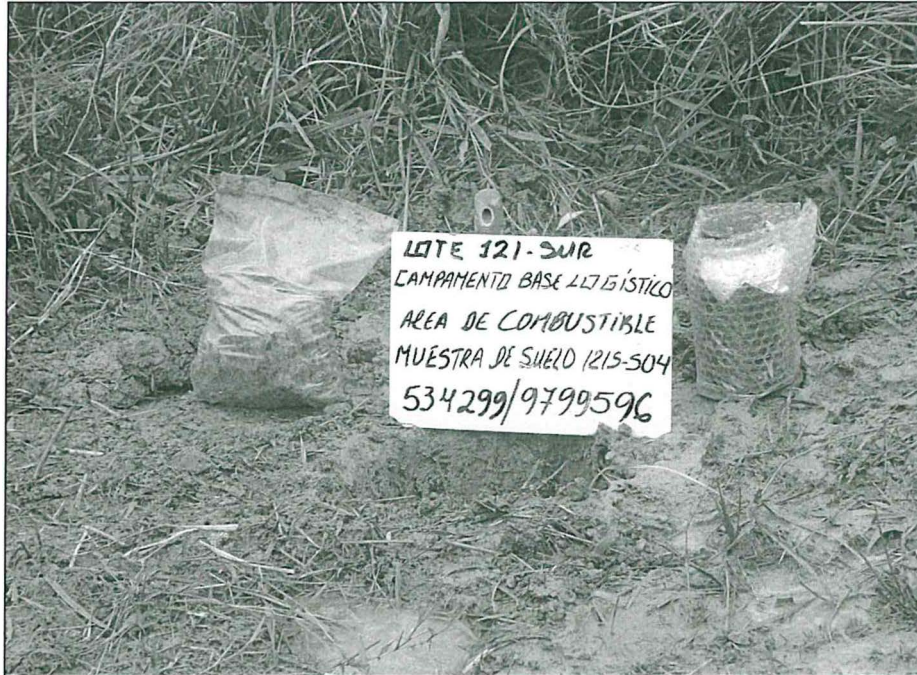 LOTE 121-SUR
CAMPAMENTO BASE LOGÍSTICO
AREA DE COMBUSTIBLE
MUESTRA DE SUELO 121S-S04
534299/9799596